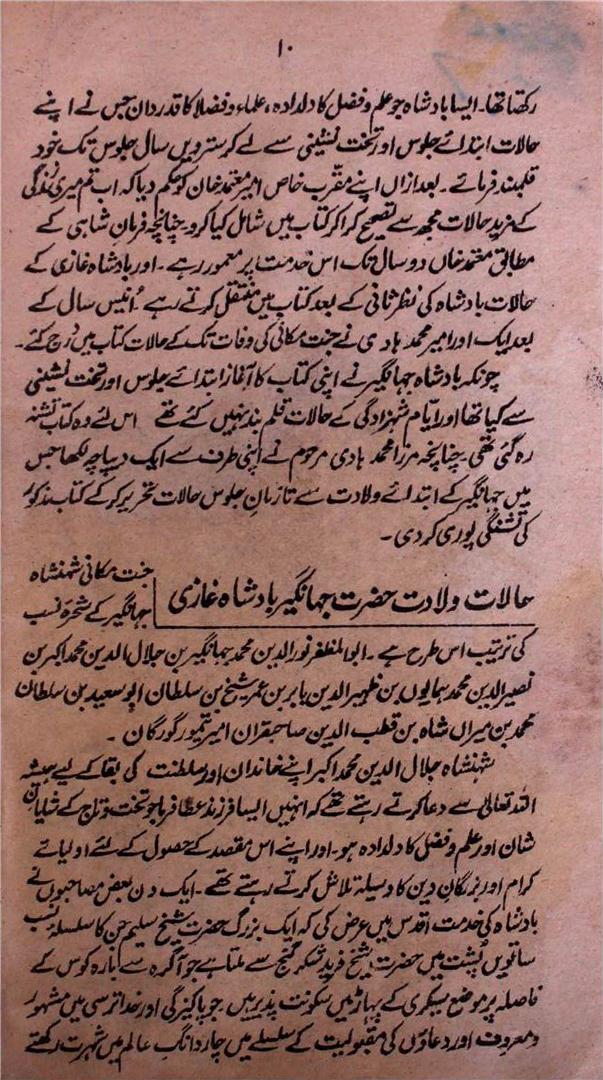 ۱۰
رکھتا تھا۔ ایسا بادشاہ جو علم و فضل کا دلدادہ، علماء و فضلا کا قدردان جس نے اپنے
حالات ابتدائے جلوس اور تخت نشینی سے لے کر سترویں سال جلوس تک خود
قلمبند فرمائے۔ بعد ازاں اپنے مقرب خاص امیر معتمد خان کو حکم دیا کہ اب تم میری زندگی
کے مزید حالات مجھ سے تصحیح کرا کر کتاب میں شامل کیا کرو۔ چنانچہ فرمانِ شاہی کے
مطابق معتمد خاں دو سال تک اس خدمت پر معمور رہے۔ اور بادشاہ غازی کے
حالات بادشاہ کی نظر ثانی کے بعد کتاب میں منتقل کرتے رہے۔ اُنیس سال کے
بعد ایک اور امیر محمد ہادی نے جنت مکانی کی وفات تک کے حالات کتاب میں درج کئے۔
چونکہ بادشاہ جہانگیر نے اپنی کتاب کا آغاز ابتدائے جلوس اور تخت نشینی
سے کیا تھا اور ایام شہزادگی کے حالات قلم بند نہیں کئے تھے اس لئے وہ کتاب تشنہ
رہ گئی تھی۔ چنانچہ مرزا محمد ہادی مرحوم نے اپنی طرف سے ایک دیباچہ لکھا جس
میں جہانگیر کے ابتدائے ولادت سے تا زمانِ جلوس حالات تحریر کر کے کتاب مذکور
کی تشنگی پوری کر دی۔
حالات ولادت حضرت جہانگیر بادشاہ غازی
جنت مکانی شہنشاہ
جہانگیر کے شجرہ نسب
کی ترتیب اس طرح ہے۔ ابوالمظفر نورالدین محمد جہانگیر بن جلال الدین محمد اکبر بن
نصیر الدین محمد ہمایوں بن ظہیر الدین بابر بن عمر شیخ بن سلطان ابو سعید بن سلطان
محمد بن میراں شاہ بن قطب الدین صاحبقران امیر تیمور گورگان۔
شہنشاہ جلال الدین محمد اکبر اپنے خاندان اور سلطنت کی بقا کے لیے ہمیشہ
اللہ تعالیٰ سے دعا کرتے رہتے تھے کہ انہیں ایسا فرزند عطا فرما جو تخت و تاج کے شایان
شان اور علم و فضل کا دلدادہ ہو۔ اور اپنے اس مقصد کے حصول کے لئے اولیائے
کرام اور بزرگان دین کا وسیلہ تلاش کرتے رہتے تھے۔ ایک دن بعض مصاحبوں نے
بادشاہ کی خدمت اقدس میں عرض کی کہ ایک بزرگ حضرت شیخ سلیم جن کا سلسلہ نسب
ساتویں پُشت میں حضرت شیخ فرید شکر گنج سے ملتا ہے جو آگرہ سے بارہ کوس کے
فاصلہ پر موضع سیکری کے پہاڑ میں سکونت پذیر ہیں۔ جو پاکیزگی اور خدا ترسی میں مشہور
و معروف اور دعاؤں کی مقبولیت کے سلسلے میں چار دانگ عالم میں شہرت رکھتے